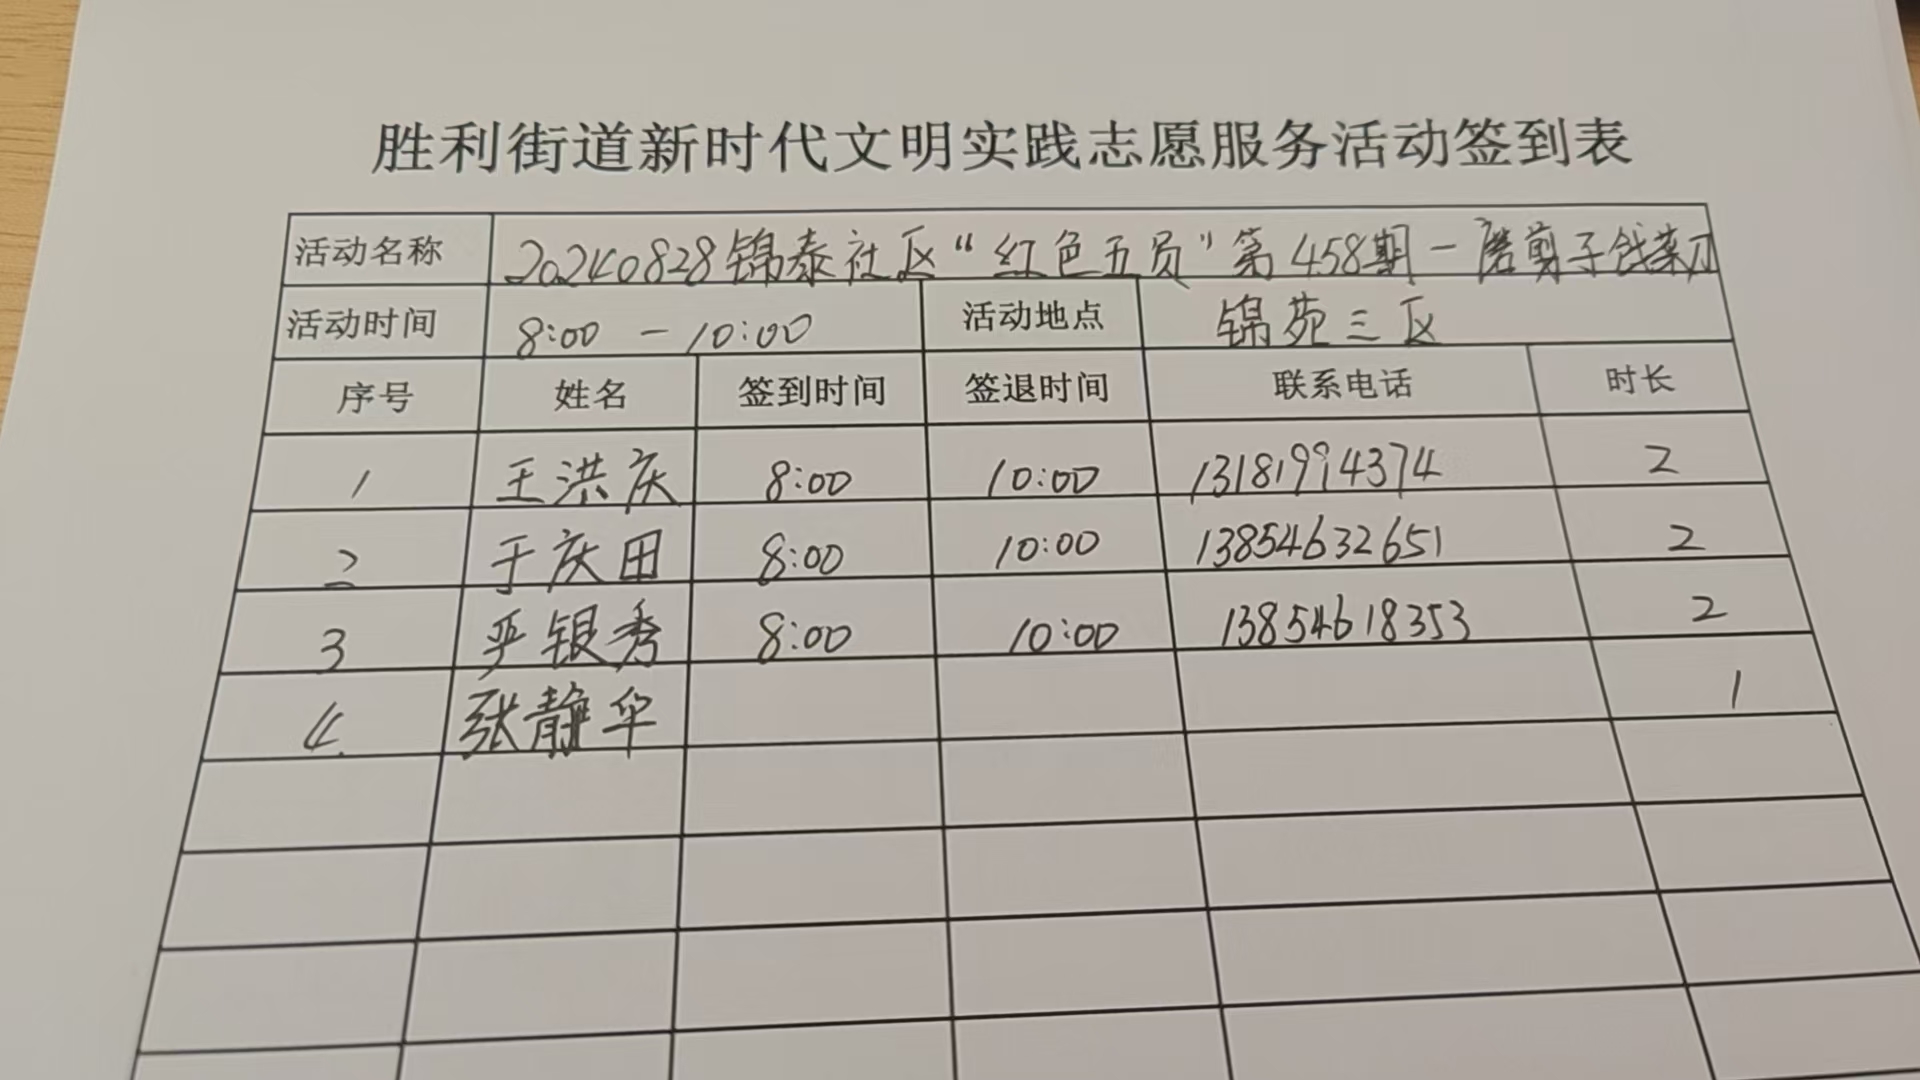 胜利街道新时代文明实践志愿服务活动签到表
活动名称 20240828锦泰社区“红色五员”第458期-磨剪子戗菜刀
活动时间 8:00-10:00 活动地点 锦苑三区
序号 姓名 签到时间 签退时间 联系电话 时长
1 王洪庆 8:00 10:00 13181994374 2
2 于庆田 8:00 10:00 13854632651 2
3 严银秀 8:00 10:00 13854618353 2
4 张静华 1